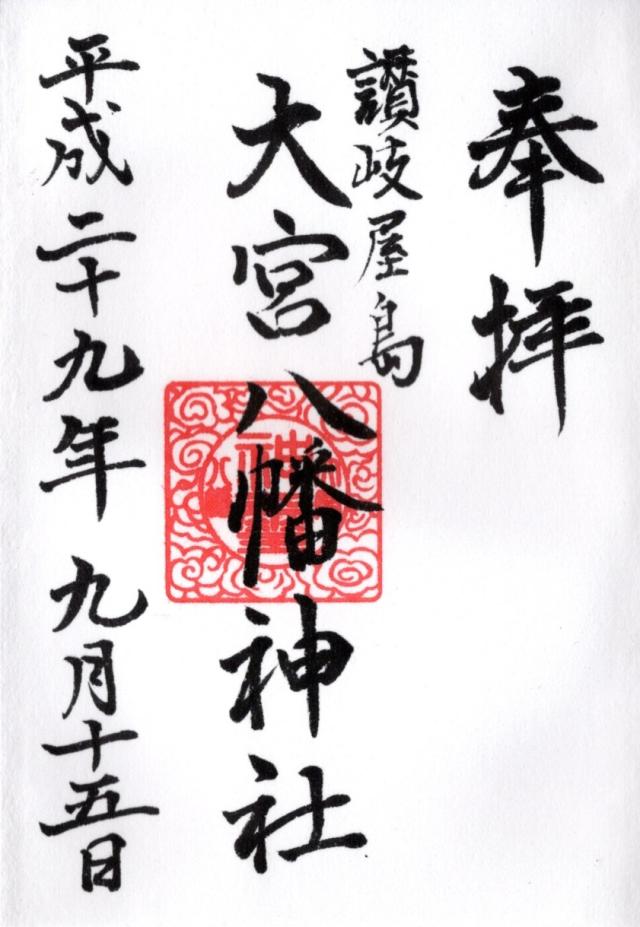 奉拝
讃岐屋島
大宮八幡神社
平成二十九年九月十五日